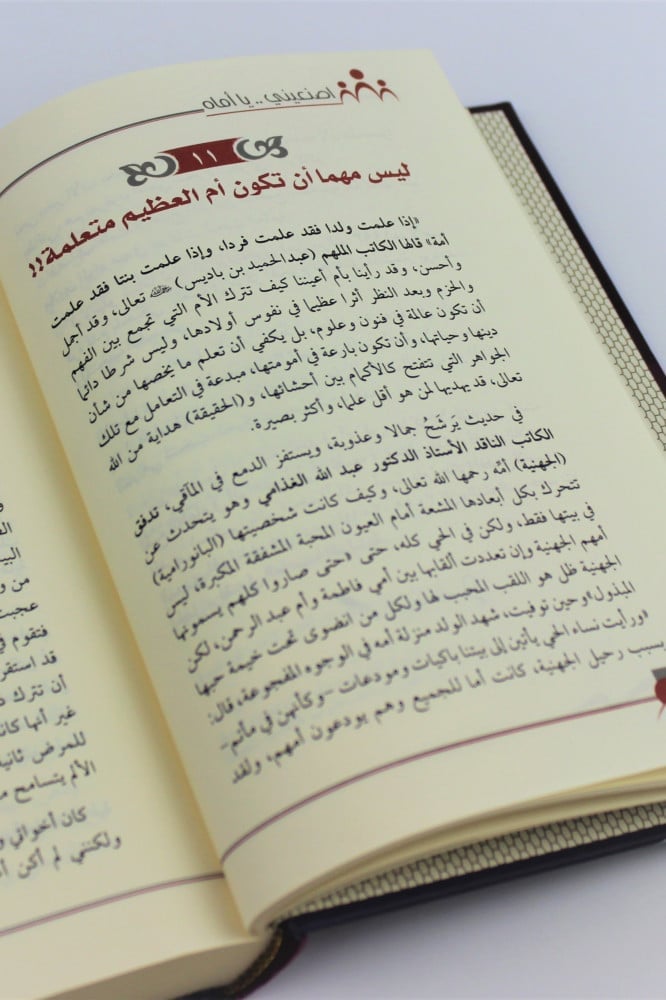 اصنعيني.. يا أماه
١١
ليس مهما أن تكون أم العظيم متعلمة!!
«إذا علمت ولدا فقد علمت فردا، وإذا علمت بنتا فقد علمت
أمة» قالها الكاتب الملهم (عبدالحميد بن باديس) ﷺ تعالى، وقد أجمل
وأحسن، وقد رأينا بأم أعيننا كيف تترك الأم التي تجمع بين الفهم
والحزم وبعد النظر أثرا عظيما في نفوس أولادها، وليس شرطا دائما
أن تكون عالمة في فنون وعلوم، بل يكفي أن تعلم ما يخصها من شأن
دينها وحياتها، وأن تكون بارعة في أمومتها، مبدعة في التعامل مع تلك
الجواهر التي تتفتح كالأكمام بين أحشائها، و(الحقيقة) هداية من الله
تعالى، قد يهديها لمن هو أقل علما، وأكثر بصيرة.
في حديث يَرشَحُ جمالا وعذوبة، ويستفز الدمع في المآقي، تدفق
الكاتب الناقد الأستاذ الدكتور عبد الله الغذامي وهو يتحدث عن
(الجهنية) أمِّه رحمها الله تعالى، وكيف كانت شخصيتها (البانورامية)
تتحرك بكل أبعادها المشعة أمام العيون المحبة المشفقة المكبرة، ليس
في بيتها فقط، ولكن في الحي كله، حتى «حتى صاروا كلهم يسمونها
أمهم الجهنية وإن تعددت ألقابها بين أمي فاطمة وأم عبد الرحمن، لكن
الجهنية ظل هو اللقب المحبب لها ولكل من انضوى تحت خيمة حبها
المبذول» وحين توفيت، شهد الولد منزلة أمه في الوجوه المفجوعة، قال:
«ورأيت نساء الحي يأتين إلى بيتنا باكيات ومودعات -وكأنهن في مأتم-
بسبب رحيل الجهنية، كانت أما للجميع وهم يودعون أمهم، ولقد
من و
عجبت
فتقوم في
قد استقر
أن تترك د
غير أنها كانـ
للمرض ثانية
الألم يتسامح مـ
كان أخواتي و
ولكنني لم أكن أ